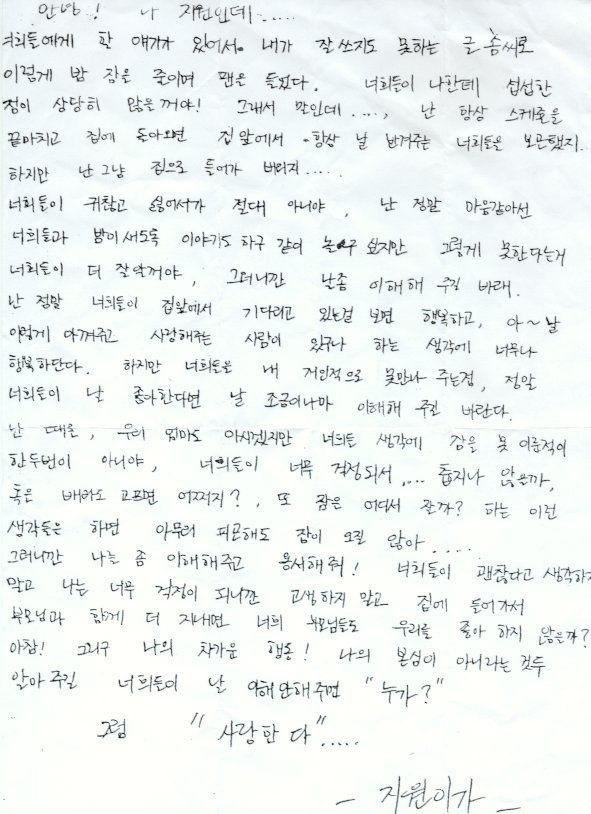 안녕! 나 지원인데....
너희들에게 할 얘기가 있어서. 내가 잘 쓰지도 못하는 글 솜씨로
이렇게 밤 잠을 줄이며 펜을 들었다. 너희들이 나한테 섭섭한
점이 상당히 많을꺼야! 그래서 말인데...., 난 항상 스케줄을
끝마치고 집에 돌아오면 집앞에서 항상 날 반겨주는 너희들을 보곤했지.
하지만 난 그냥 집으로 들어가 버리지.....
너희들이 귀찮고 싫어서가 절대 아니야, 난 정말 마음같아선
너희들과 밤이새도록 이야기도 하구 같이 놀구 싶지만 그렇게 못한다는거
너희들이 더 잘알꺼야, 그러니깐 날좀 이해해 주길 바래.
난 정말 너희들이 집앞에서 기다리고 있는걸 보면 행복하고, 아~날
이렇게 아껴주고 사랑해주는 사람이 있구나 하는 생각에 너무나
행복하단다. 하지만 너희들을 내 개인적으로 못만나 주는점, 정말
너희들이 날 좋아한다면 날 조금이나마 이해해 주길 바란다.
난 때론, 우리 엄마도 아시겠지만 너희들 생각에 잠을 못 이룬적이
한두번이 아니야, 너희들이 너무 걱정되서,... 춥지나 않은까,
혹은 배라도 고프면 어쩌지?, 또 잠은 어디서 잘까? 하는 이런
생각들을 하면 아무리 피곤해도 잠이 오질 않아.....
그러니깐 나를 좀 이해해주고 용서해줘! 너희들이 괜찮다고 생각하지
말고 나는 너무 걱정이 되니깐 고생하지 말고 집에 들어가서
부모님과 함께 더 지내면 너희 부모님들도 우리를 좋아 하지 않은까?
아참! 그리구 나의 차가운 행동! 나의 본심이 아니라는 것두
알아 주길 너희들이 날 이해안해주면 "누가?"
그럼 "사랑한다".....
- 지원이가 -